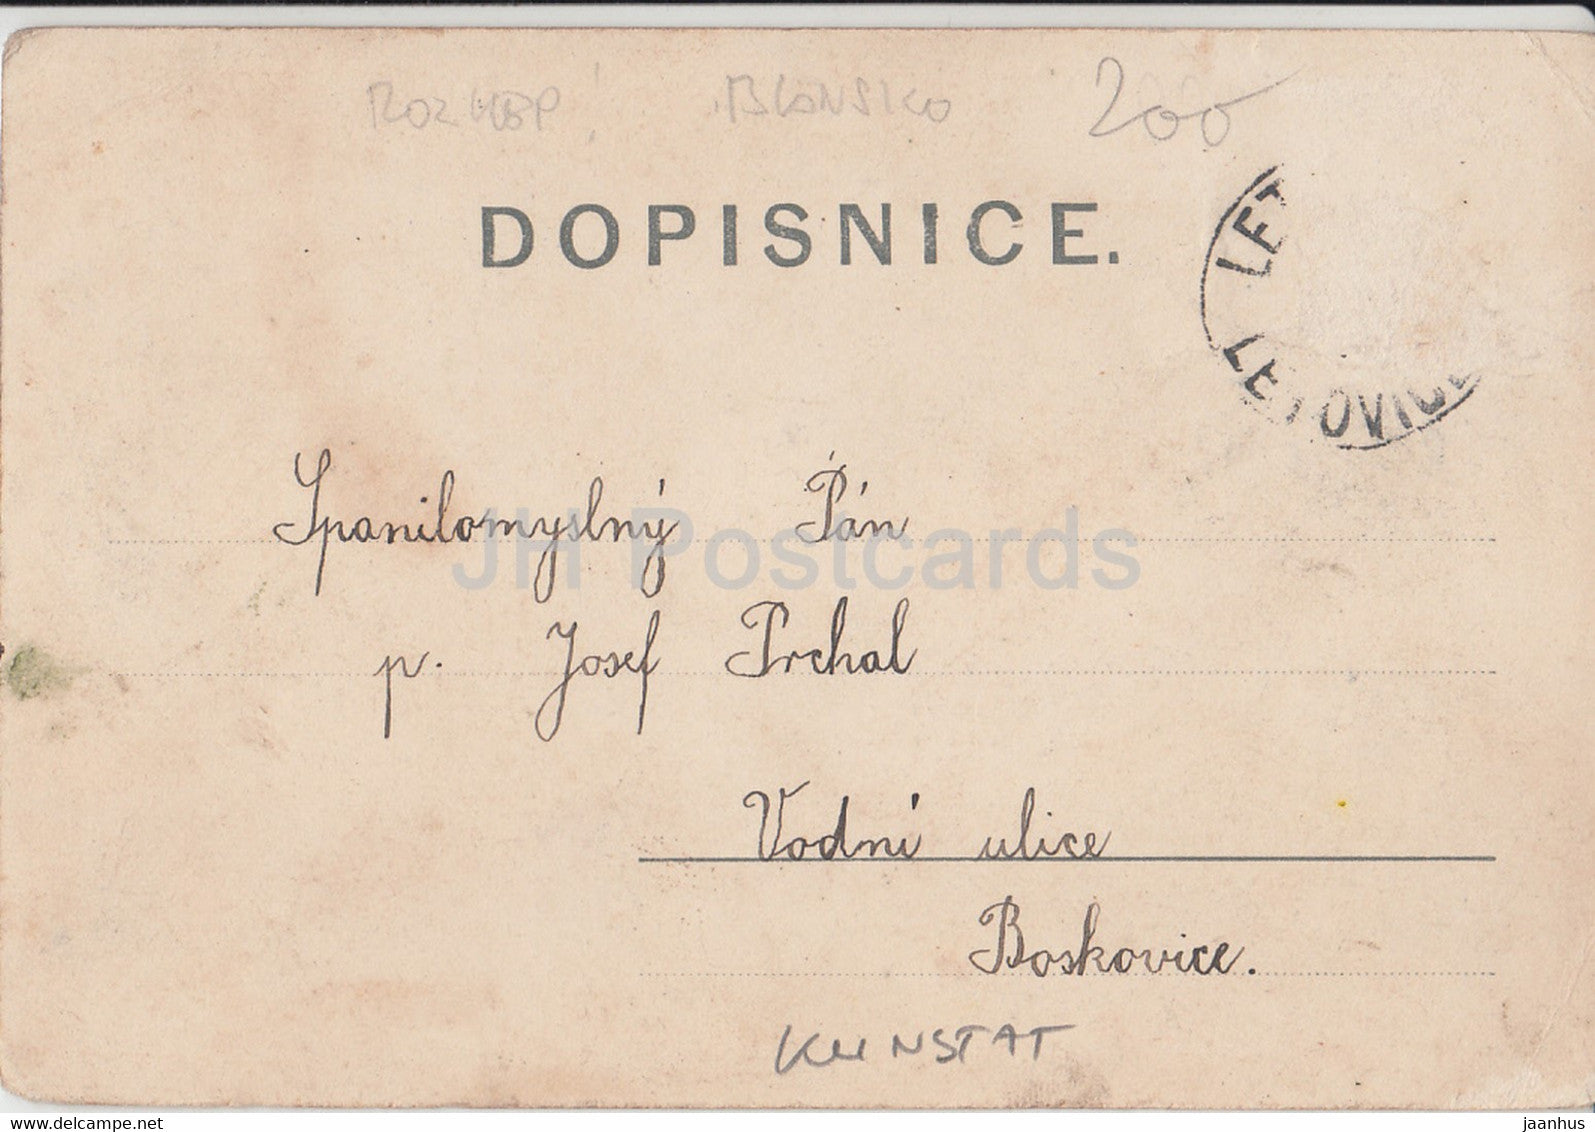 BLANSKO 200
DOPISNICE.
LET
LETOVICE
Spanilomyslný Pán
JH Postcards
p. Josef Prchal
Vodní ulice
Boskovice.
KUNSTAT
www.delcampe.net
jaanhus